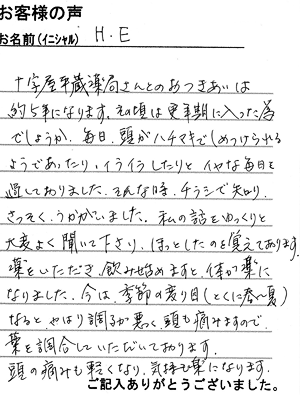 お客様の声
お名前(イニシャル) H.E
十字屋平蔵薬局さんとのおつきあいは
約5年になります。その頃は更年期に入った為
でしょうか、毎日、頭がハチマキでしめつけられる
ようであったり、イライラしたりとイヤな毎日を
過しておりました。そんな時、チラシで知り、
さっそく、うかがいました。私の話をゆっくりと
大変よく聞いて下さり、ほっとしたのを覚えております。
薬をいただき、飲み始めますと、体が楽に
なりました。今は、季節の変り目(とくに春〜夏)
なると、やはり調子が悪く、頭も痛みますので、
薬を調合していただいております。
頭の痛みも軽くなり、気持も楽になります。
ご記入ありがとうございました。